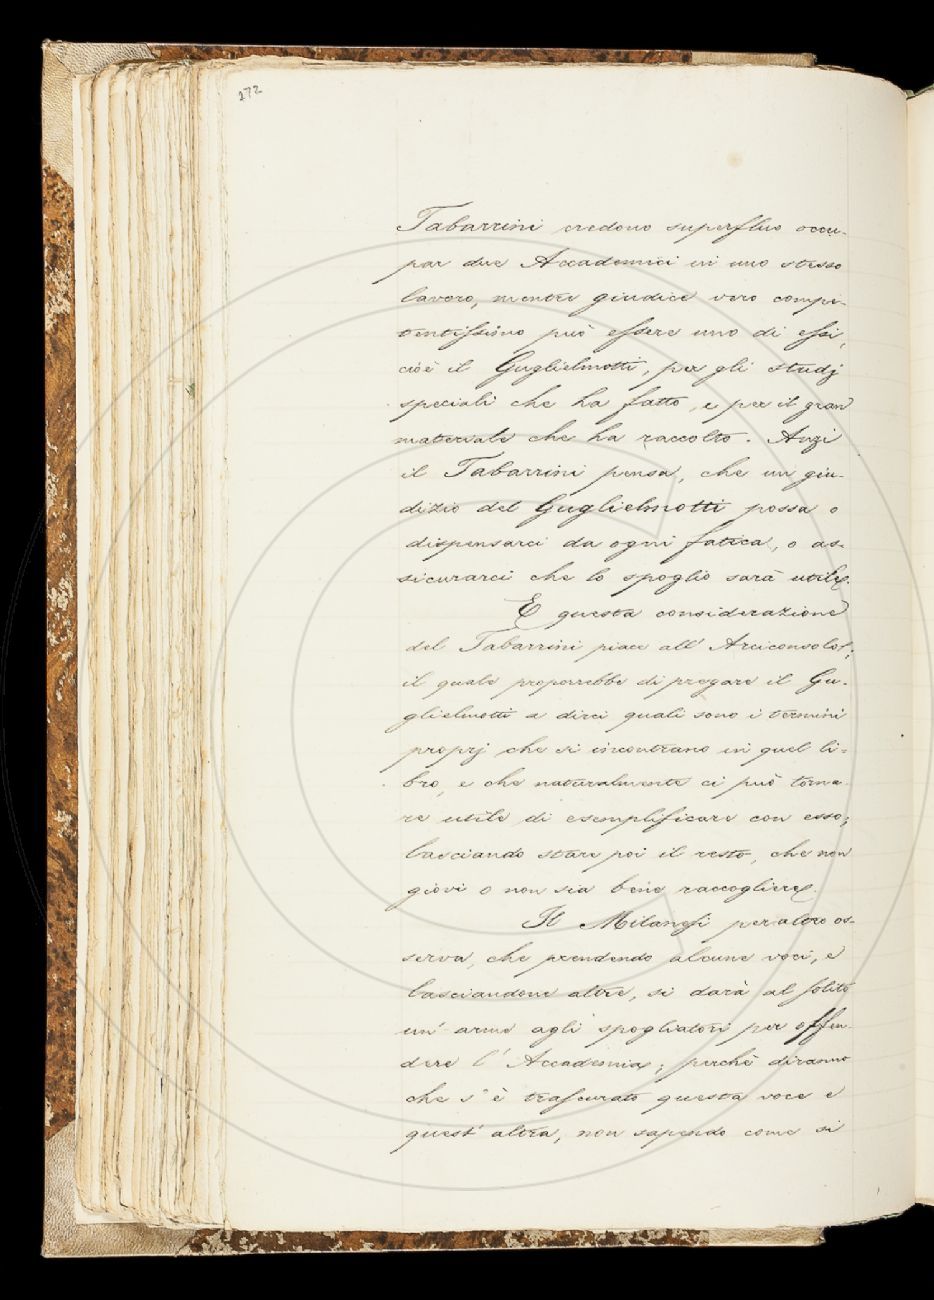 172
Tabarrini credono superfluo occu-
par due Accademici in uno stesso
lavoro, mentre giudice vero compe-
tentissimo può essere uno di essi,
cioè il Guglielmotti, per gli studj
speciali che ha fatto, e per il gran
materiale che ha raccolto. Anzi
il Tabarrini pensa, che un giu-
dizio del Guglielmotti possa o
dispensarci da ogni fatica, o as-
sicurarci che lo spoglio sarà utile.
E questa considerazione
del Tabarrini piace all' Arciconsolo;
il quale proporrebbe di pregare il Gu-
glielmotti a dirci quali sono i termini
proprj che si incontrano in quel li-
bro, e che naturalmente ci può torna-
re utile di esemplificare con esso;
lasciando stare poi il resto, che non
giovi o non sia bene raccogliere.
Il Milanesi peraltro os-
serva, che prendendo alcune voci, e
lasciandone altre, si darà al solito
un' arme agli spogliatori per offen-
dere l' Accademia; perchè diranno
che s' è trascurato questa voce e
quest' altra, non sapendo come si